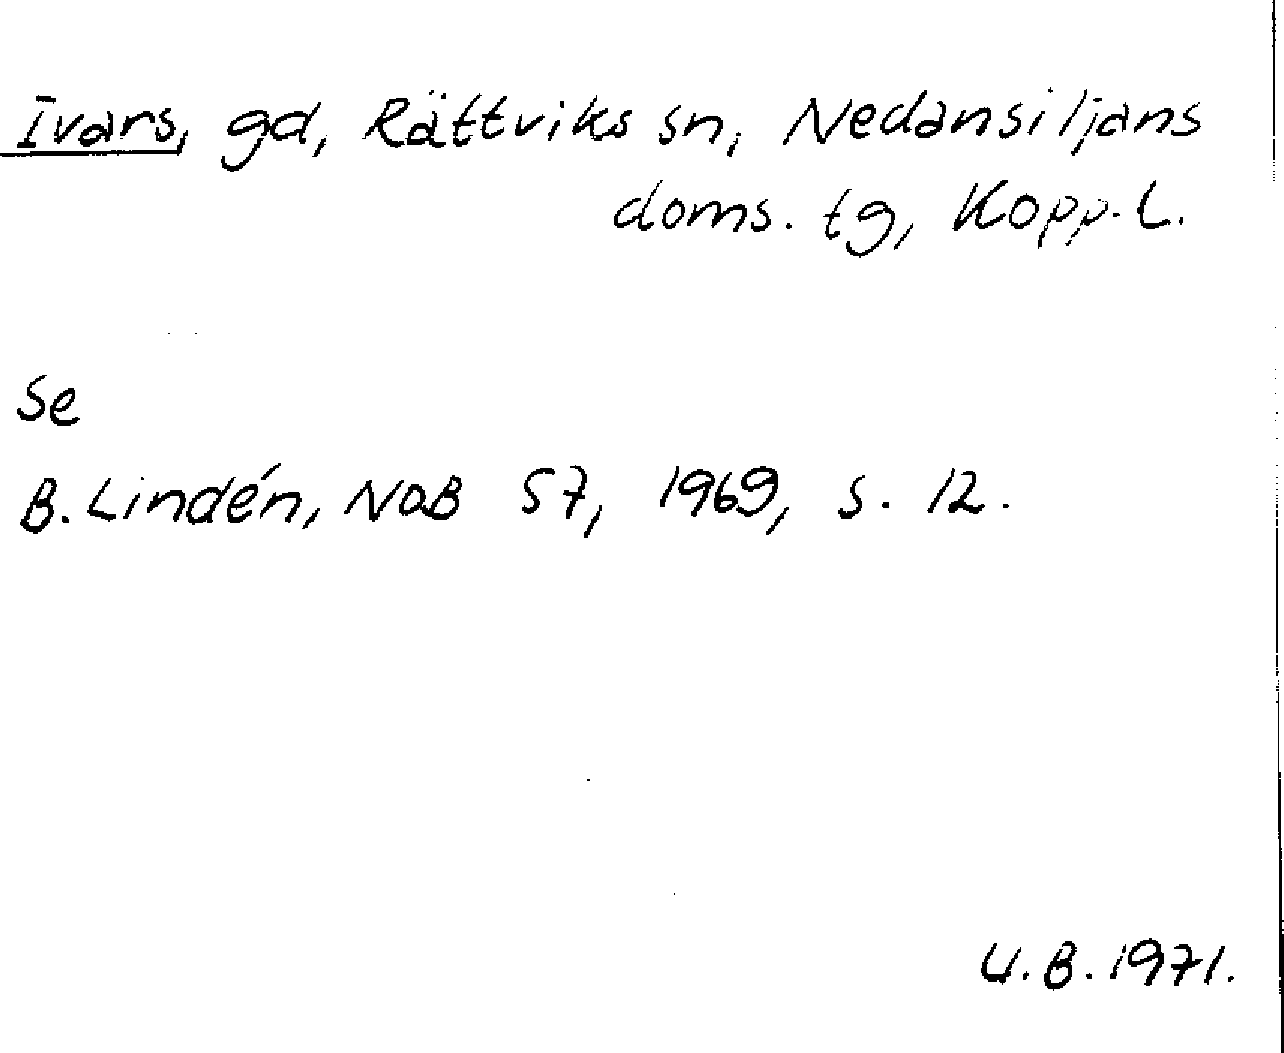 Ivars, gd, Rättviks sn, Nedansiljans
doms. tg, Kopp. L.
Se
B. Lindén, NoB 57, 1969, s. 12.
U. B. 1971.